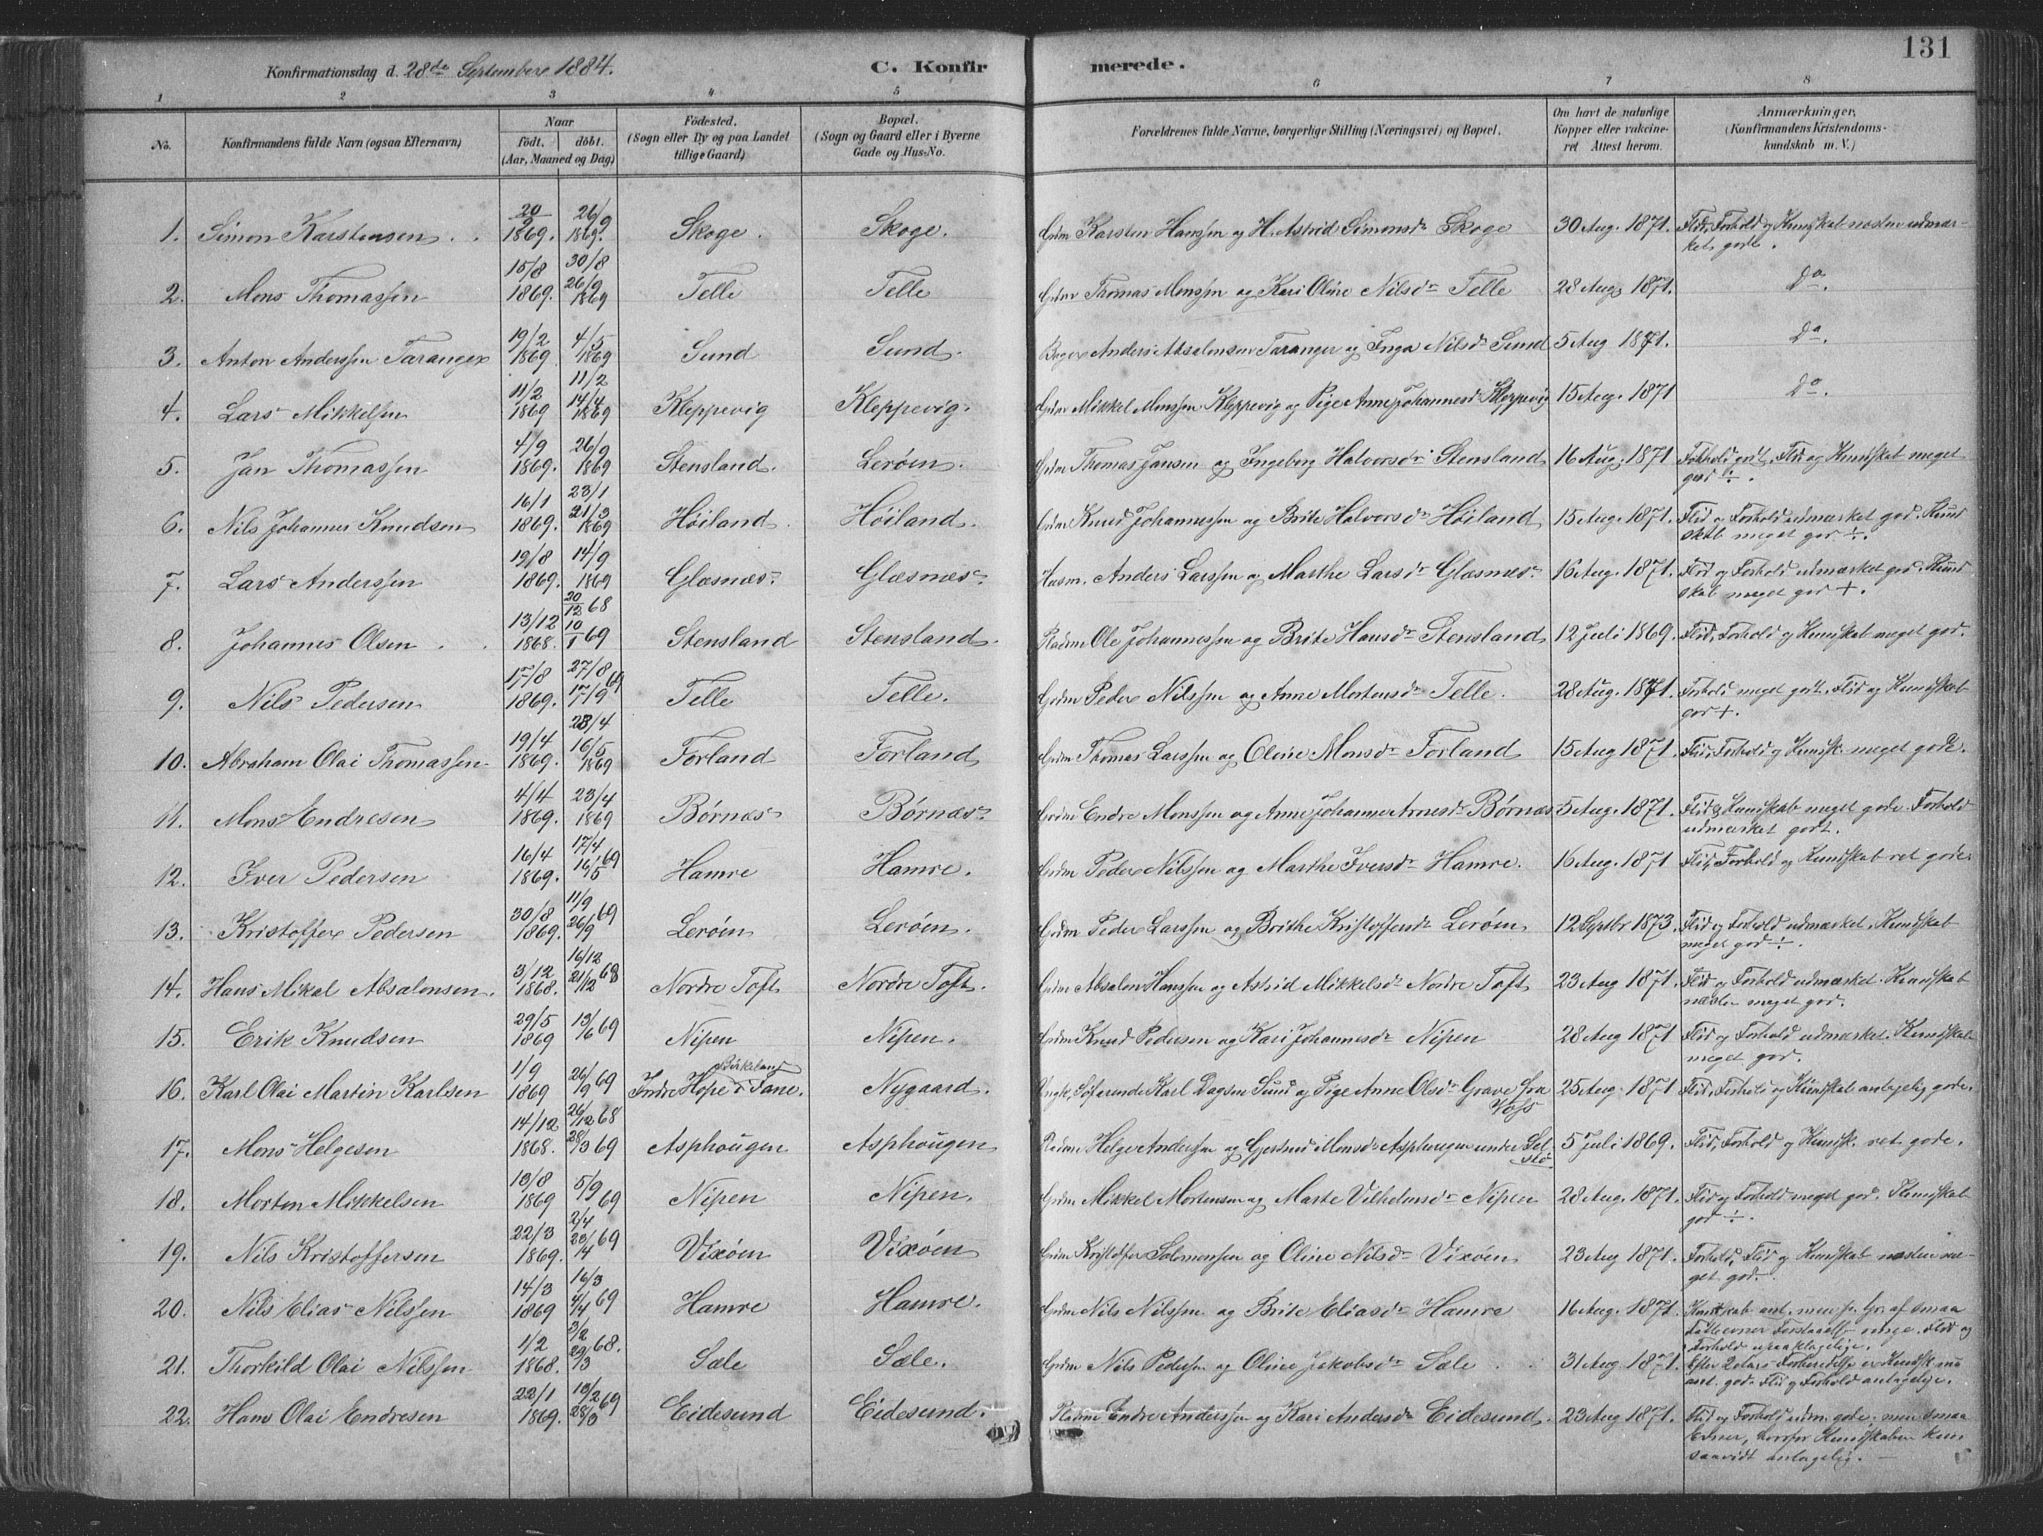 131
Konfirmationsdag d. 28de September 1884.
C. Konfirmerede.
1 2 3 4 5 6 7 8
No. Konfirmandens fulde Navn (ogsaa Efternavn) Naar født. døbt. (Aar, Maaned og Dag) Fødested. (Sogn eller By og paa Landet tillige Gaard) Bopæl. (Sogn og Gaard eller i Byerne Gade og Hus-No. Forældrenes fulde Navne, borgerlige Stilling (Næringsvei) og Bopæl. Om havt de naturlige Kopper eller vakcineret Attest herom. Anmærkninger, (Konfirmandens Kristendomskundskab m. V.)
1. Simon Karstensen 20/9 1869. 26/9 1869. Skoge. Skoge. Grdm Karsten Hanssen og H. Astrid Simonsdr Skoge 30 Aug. 1871. Flid, Forhold og Kundskab næsten udmærket gode.
2. Mons Thomassen 15/8 1869. 30/8 26/9 1869 Telle Telle Grdm Thomas Monssen og Kari Oline Nilsdr Telle 28 Aug. 1871. Do.
3. Anton Anderssen Taranger 19/2 1869 4/5 1869 Sund Sund. Anders Absalonsen Taranger og Inga Nilsdr Sund 5 Aug 1871. Do.
4. Lars Mikkelsen 11/2 1869 11/2 14/4 1869 Kleppevig Kleppevig. Grdm Mikkel Monssen Kleppevig og Pige Anne Johannesdr Kleppevig 15 Aug. 1871 Do.
5. Jan Thomassen 4/9 1869. 26/9 1869 Stensland. Lerøen. Grdm Thomas Jansen og Ingeborg Halvorsdr Stensland 16 Aug. 1871 Forhold godt, Flid og Kundskab meget god ÷.
6. Nils Johannes Knudsen 16/1 1869. 23/1 21/3 1869 Høiland. Høiland. Grdm Knud Johannessen og Brite Halvorsdr Høiland 15 Aug. 1871. Flid og Forhold udmærket god. Kundskab meget god ÷.
7. Lars Anderssen 19/8 1869. 14/9 1869 Glæsnes Glæsnes Husm. Anders Larssen og Marthe Larsdr Glæsnes 16 Aug. 1871. Flid og Forhold udmærket god. Kundskab meget god +.
8. Johannes Olsen 13/12 1868. 20/12 68 10/1 69 Stensland Stensland. Pladsm Ole Johannessen og Brite Hansdr Stensland 12 Juli 1869. Flid, Forhold og Kundskab meget god.
9. Nils Pedersen 17/8 1869. 27/8 17/9 69 Telle Telle. Grdm Peder Nilssen og Anne Mortensdr Telle. 28 Aug. 1871. Forhold meget godt. Flid og Kundskab god +.
10. Abraham Olai Thomassen 19/4 1869. 23/4 16/5 1869 Forland Forland Grdm Thomas Larssen og Oline Monsdr Forland 15 Aug 1871. Flid, Forhold og Kundsk. meget gode.
11. Mons Endresen 4/4 1869. 23/4 1869 Børnæs Børnæs Grdm Endre Monssen og Anne Johanne Arnesdr Børnæs 5 Aug. 1871. Flid & Kundskab meget gode. Forhold udmærket godt.
12. Iver Pedersen 16/4 1869. 17/4 16/5 69 Hamre Hamre. Grdm Peder Nilssen og Marthe Iversdr Hamre. 16 Aug. 1871 Flid, Forhold og Kundskab ret gode.
13. Kristoffer Pedersen 30/8 1869. 11/9 26/9 69 Lerøen Lerøen. Grdm Peder Larssen og Brithe Kristoffersdr Lerøen 12 Septbr 1873. Flid og Forhold udmærket. Kundskab meget god ÷.
14. Hans Mikal Absalonsen. 3/12 1868. 16/12 21/12 68 Nordre Toft Nordre Toft. Grdm Absalon Hanssen og Astrid Mikkelsdr Nordre Toft 23 Aug 1871. Flid og Forhold udmærket. Kundskab næsten meget god.
15. Erik Knudsen 29/5 1869 13/6 69 Nipen Nipen. Grdm Knud Pedersen og Kari Johannesdr Nipen 28 Aug 1871. Flid og Forhold udmærket. Kundskab meget god.
16. Karl Olai Martin Karlsen 1/9 1869 26/9 69 Indre Hope Birkeland i Fane. Nygaard. Ungk. Søfarende Karl Dagsen Sund og Pige Anne Olsdr Grave fra Voss 25 Aug. 1871. Flid, Forhold og Kundskab antagelig gode.
17. Mons Helgesen 14/12 1868. 26/12 68 28/3 69 Asphougen Asphougen Pladsm Helge Anderssen og Gjertrud Monsdr Asphougen under Selstø. 5 Juli 1869. Flid, Forhold og Kundsk. ret gode.
18. Morten Mikkelsen 13/8 1869 5/9 69 Nipen Nipen. Grdm Mikkel Mortensen og Marte Vilhelmsdr Nipen 28 Aug. 1871. Flid og Forhold meget god. Kundskab god ÷.
19. Nils Kristoffersen 22/3 1869. 2/4 23/4 69 Vixøen Vixøen Grdm Kristoffer Salomonssen og Oline Nilsdr Vixøen 23 Aug 1871. Forhold, Flid og Kundskab næsten meget god.
20. Nils Elias Nilssen 14/3 1869 16/3 4/4 69 Hamre Hamre. Grdm Nils Nilssen og Brite Eliasdr Hamre 16 Aug. 1871. Kundskab ant. men p. Gr. af smaa Forstaaelse ringe. Flid og Forhold upaaklagelige.
21. Thorkild Olai Nilssen 1/2 1868. 3/2 29/3 68. Sæle Sæle. Grdm Nils Pedersen og Oline Jakobsdr Sæle 31 Aug 1871. Efter 2 Aars Forberedelse er Kundsk. nu ant. god. Flid og Forhold antagelige.
22. Hans Olai Endresen 22/1 1869. 13/2 69 28/3 Eidesund Eidesund. Pladsm Endre Anderssen og Kari Andersdr Eidesund. 23 Aug 1871. Flid og Forhold udm. gode, men smaa Evner, hvorfor Kundskaben kun saavidt antagelig.